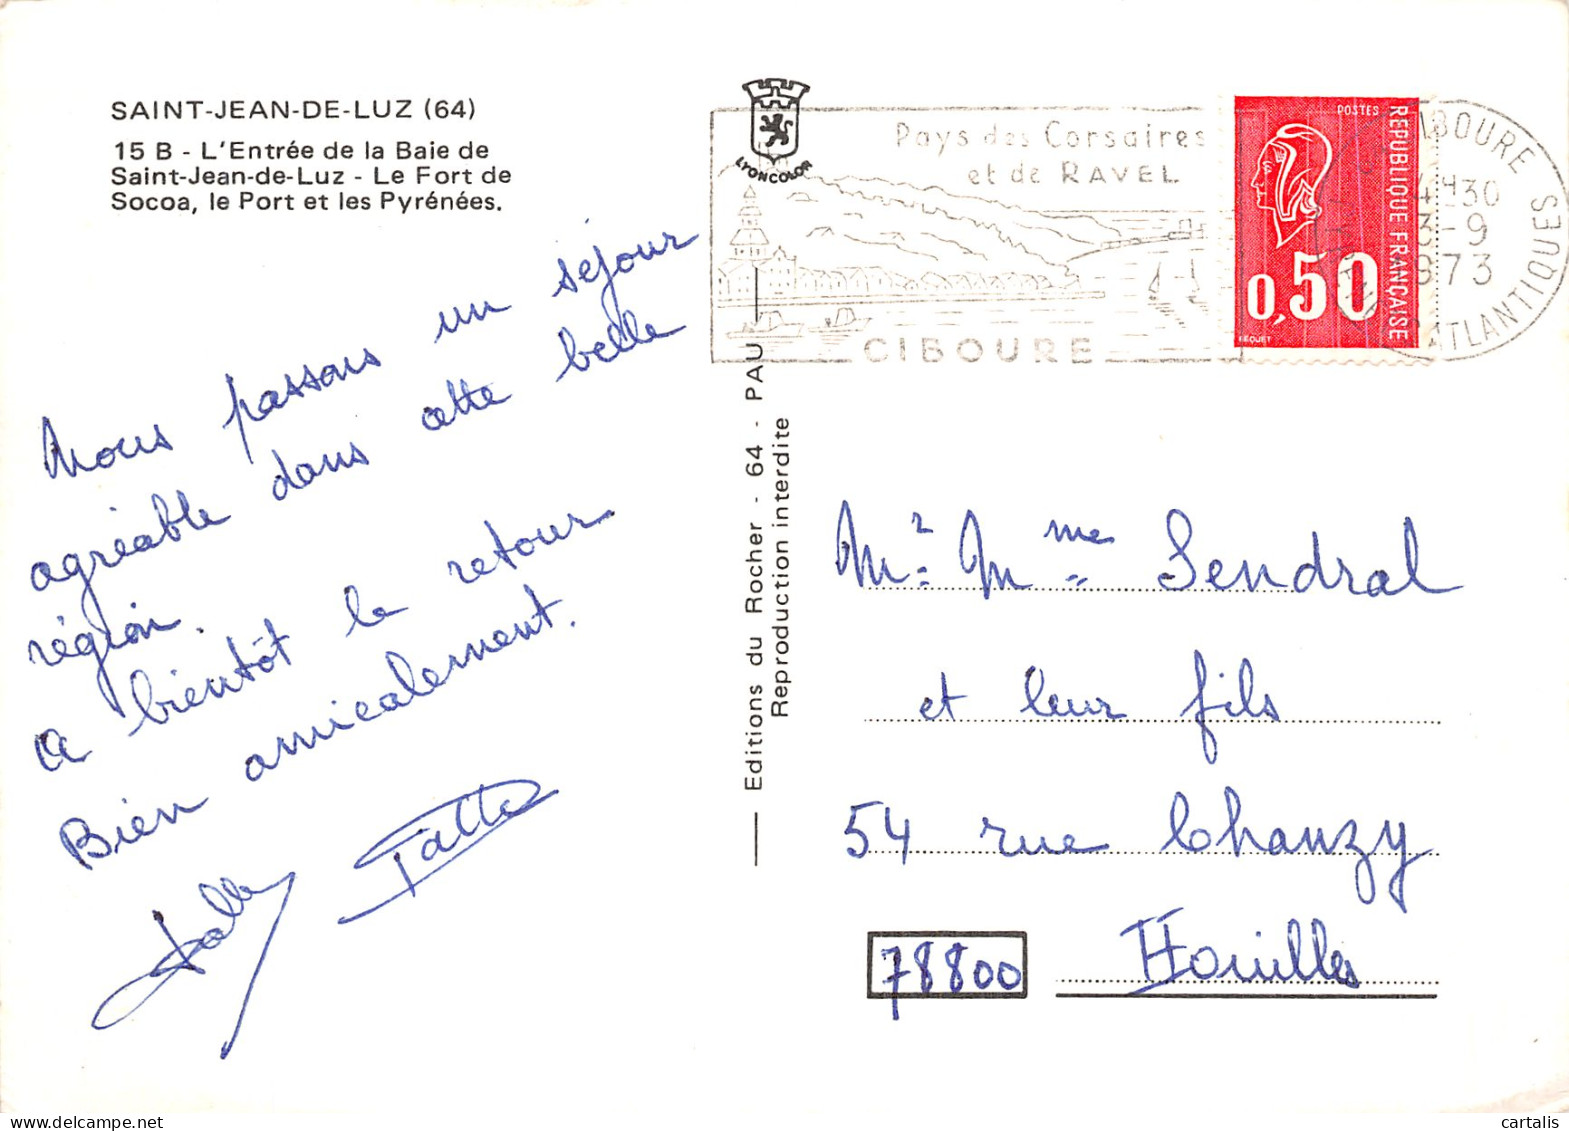 SAINT-JEAN-DE-LUZ (64)
15 B - L'Entrée de la Baie de
Saint-Jean-de-Luz - Le Fort de
Socoa, le Port et les Pyrénées.
Nous passons un séjour
agréable dans cette belle
région.
A bientôt le retour
Bien amicalement.
LYONCOLOR
Editions du Rocher - 64 - PAU
Reproduction interdite
Pays des Corsaires
et de RAVEL
CIBOURE
POSTES
REPUBLIQUE FRANÇAISE
0,50
BEQUET
CIBOURE
4H30
3-9
1973
ATLANTIQUES
Mr Mme Sendral
et leur fils
54 rue Chanzy
78800 Houilles
cartalis